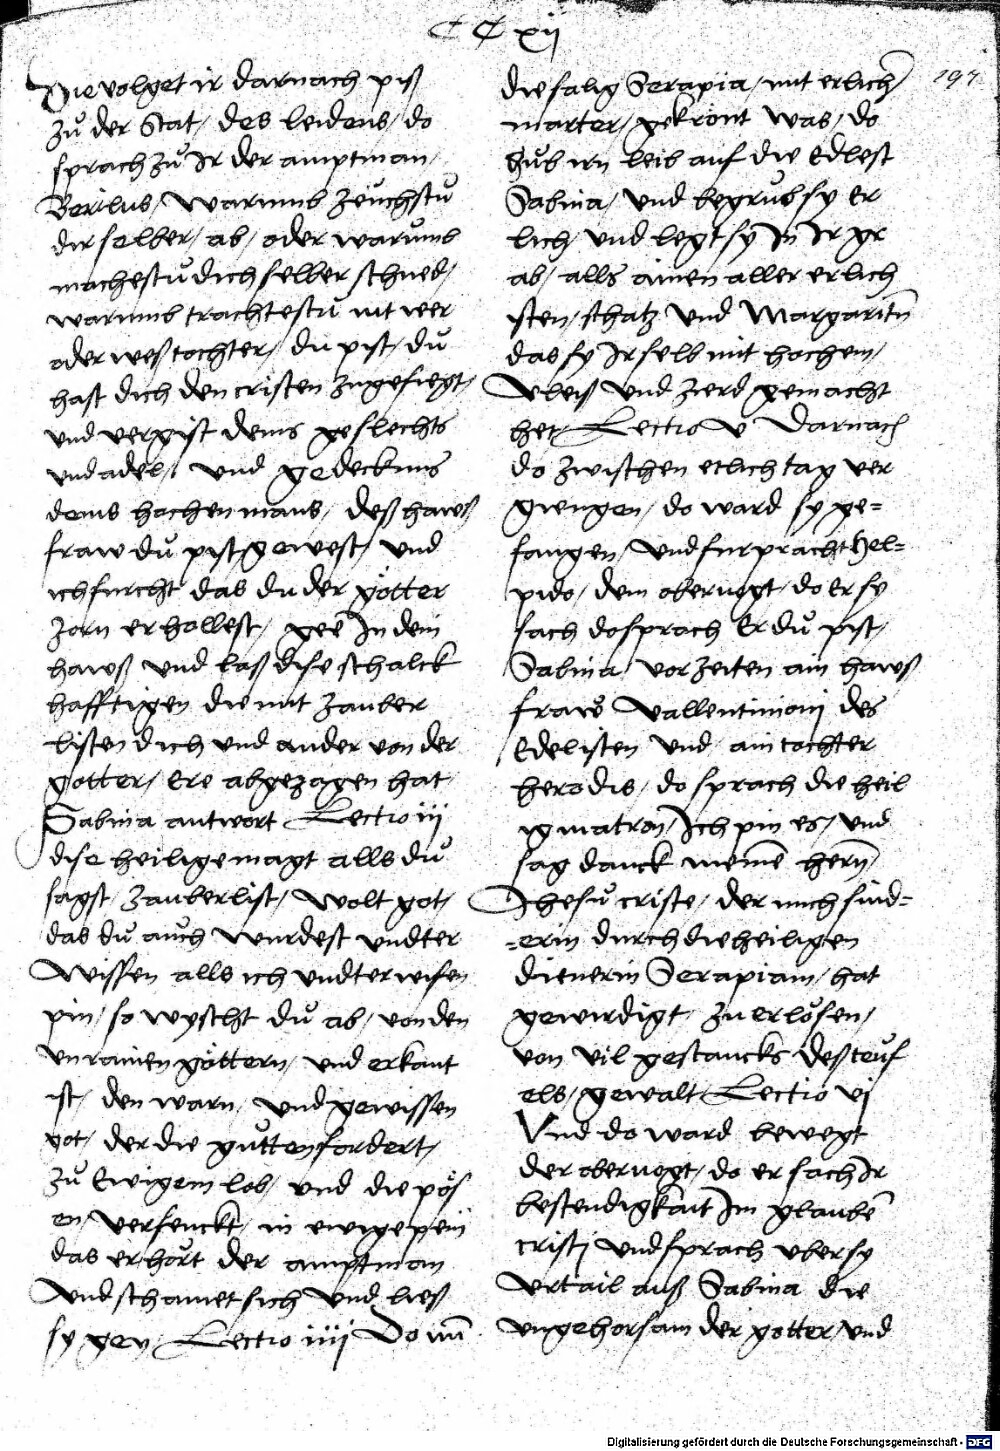 CC xij
197
Die volget ir darnach piß
zů der Stat / des leidens / do
sprach zů Ir der amptman /
Berilus / Warumb zeuchstu
dir selber / ab / oder warumb
machestu dich selber schned /
warumb trachtestu nit wer
oder wes tochter / du pist / du
hast dich den cristen zugefiegt /
vnd vergist deins geslechts
vnd adel / vnd gedeck uns
deins hochen mans / deß haws
fraw dů pist gewest / vnd
ich furcht das du der götter
zorn erhollest / gee In dein
hawß vnd laß dise schalck
hafftigen die mit zauber
listen dich vnd ander von der
gotter / Ere abgezogen hat
Sabina antwort Lectio iij
dise heilige magt alls dů
sagst / zauberlist / wolt got /
das dů auch wurdest vndter
wissen alls ich vndterwisen
pin / so wyscht dů ab / von den
vnrainen göttern / vnd erkant
ist / den warn / vnd gewissen
got / der die gůtten fordert /
zů Ewigem lob / vnd die pös
en / versenckt / in ewige pein
das erhört der amptman
Vnd schamet sich vnd ließ
sy gen / Lectio iiij Do nun
die salig Serapia / mit erlicher
marter / gekrönt was / do
hůb irn leib auf die Edlest
Sabina / vnd begrub sy Er
lich / vnd legt sy In Ir gr
ab / alls ainen aller erlich
sten / schatz vnd Margaritn
das sy Ir selb mit hochem /
vleiß vnd zierd gemacht
het / Lectio v Darnach
do zwischen etlich tag ver
giengen / do ward sy ge=
fangen / vnd furpracht Hel=
pido / dem obervogt / do Er sy
sach do sprach Er dů pist /
Sabina / vor zeiten ain haws
fraw Vallentiniani des
Edelisten vnd ain tochter
herodis / do sprach die heil
ig matron / Ich pin es / vnd
sag danck meinē hern
Jhesů criste / der mich sünd=
=erin durch die heiligen
dienerin Serapiam / hat
gewirdigt / zu erlösen /
von vil gestancks deß teuf
els / gewalt / Lectio vi
Vnd do ward bewegt
der obervogt / do er sach Ir
bestendigkait Im glaubē
cristi vnd sprach vber sy
vrtail auß Sabina die
vngehorsam der gotter / vnd
Digitalisierung gefördert durch die Deutsche Forschungsgemeinschaft - DFG